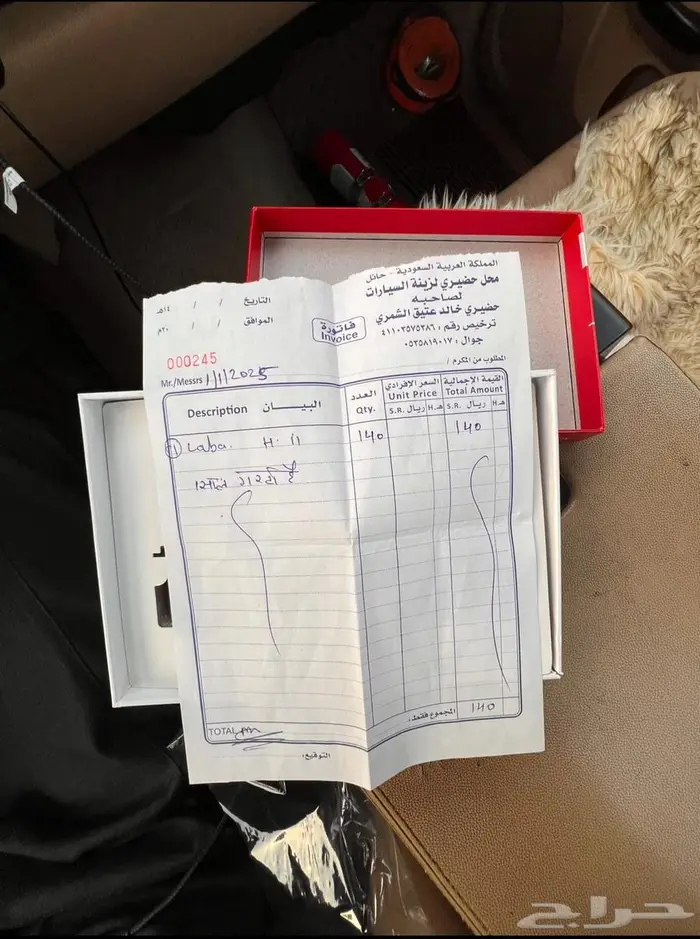 المملكة العربية السعودية - حائل
محل حضيري لزينة السيارات
لصاحبه
حضيري خالد عتيق الشمري
ترخيص رقم : ٤١١٠٣٥٧٥٣٨٦
جوال : ٠٥٣٥٨١٩٠١٧
التاريخ / / ١٤هـ
الموافق / / ٢٠م
فاتورة
Invoice
000245
المطلوب من المكرم /
Mr./Messrs 1/1/2025
Description البيـــان العدد السعر الإفرادي القيمة الإجمالية
Qty. Unit Price Total Amount
S.R. ريال H. هـ S.R. ريال H. هـ
① Laba. H. 11 140 140
है
TOTAL المجموع فقط: 140
التوقيع:
حراج